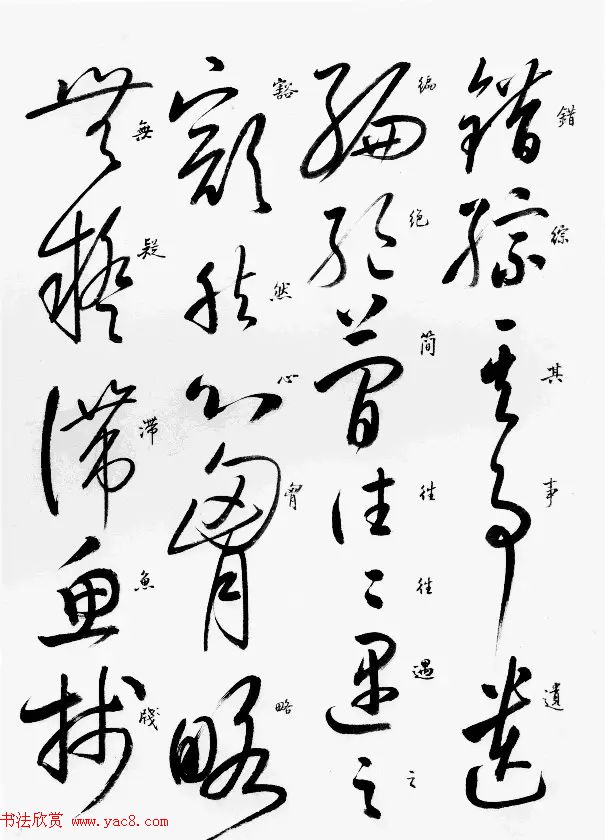 錯綜其事遺
编绝简往往遇之
豁然心胷略
無疑滞魚牋
书法欣赏 www.yac8.com